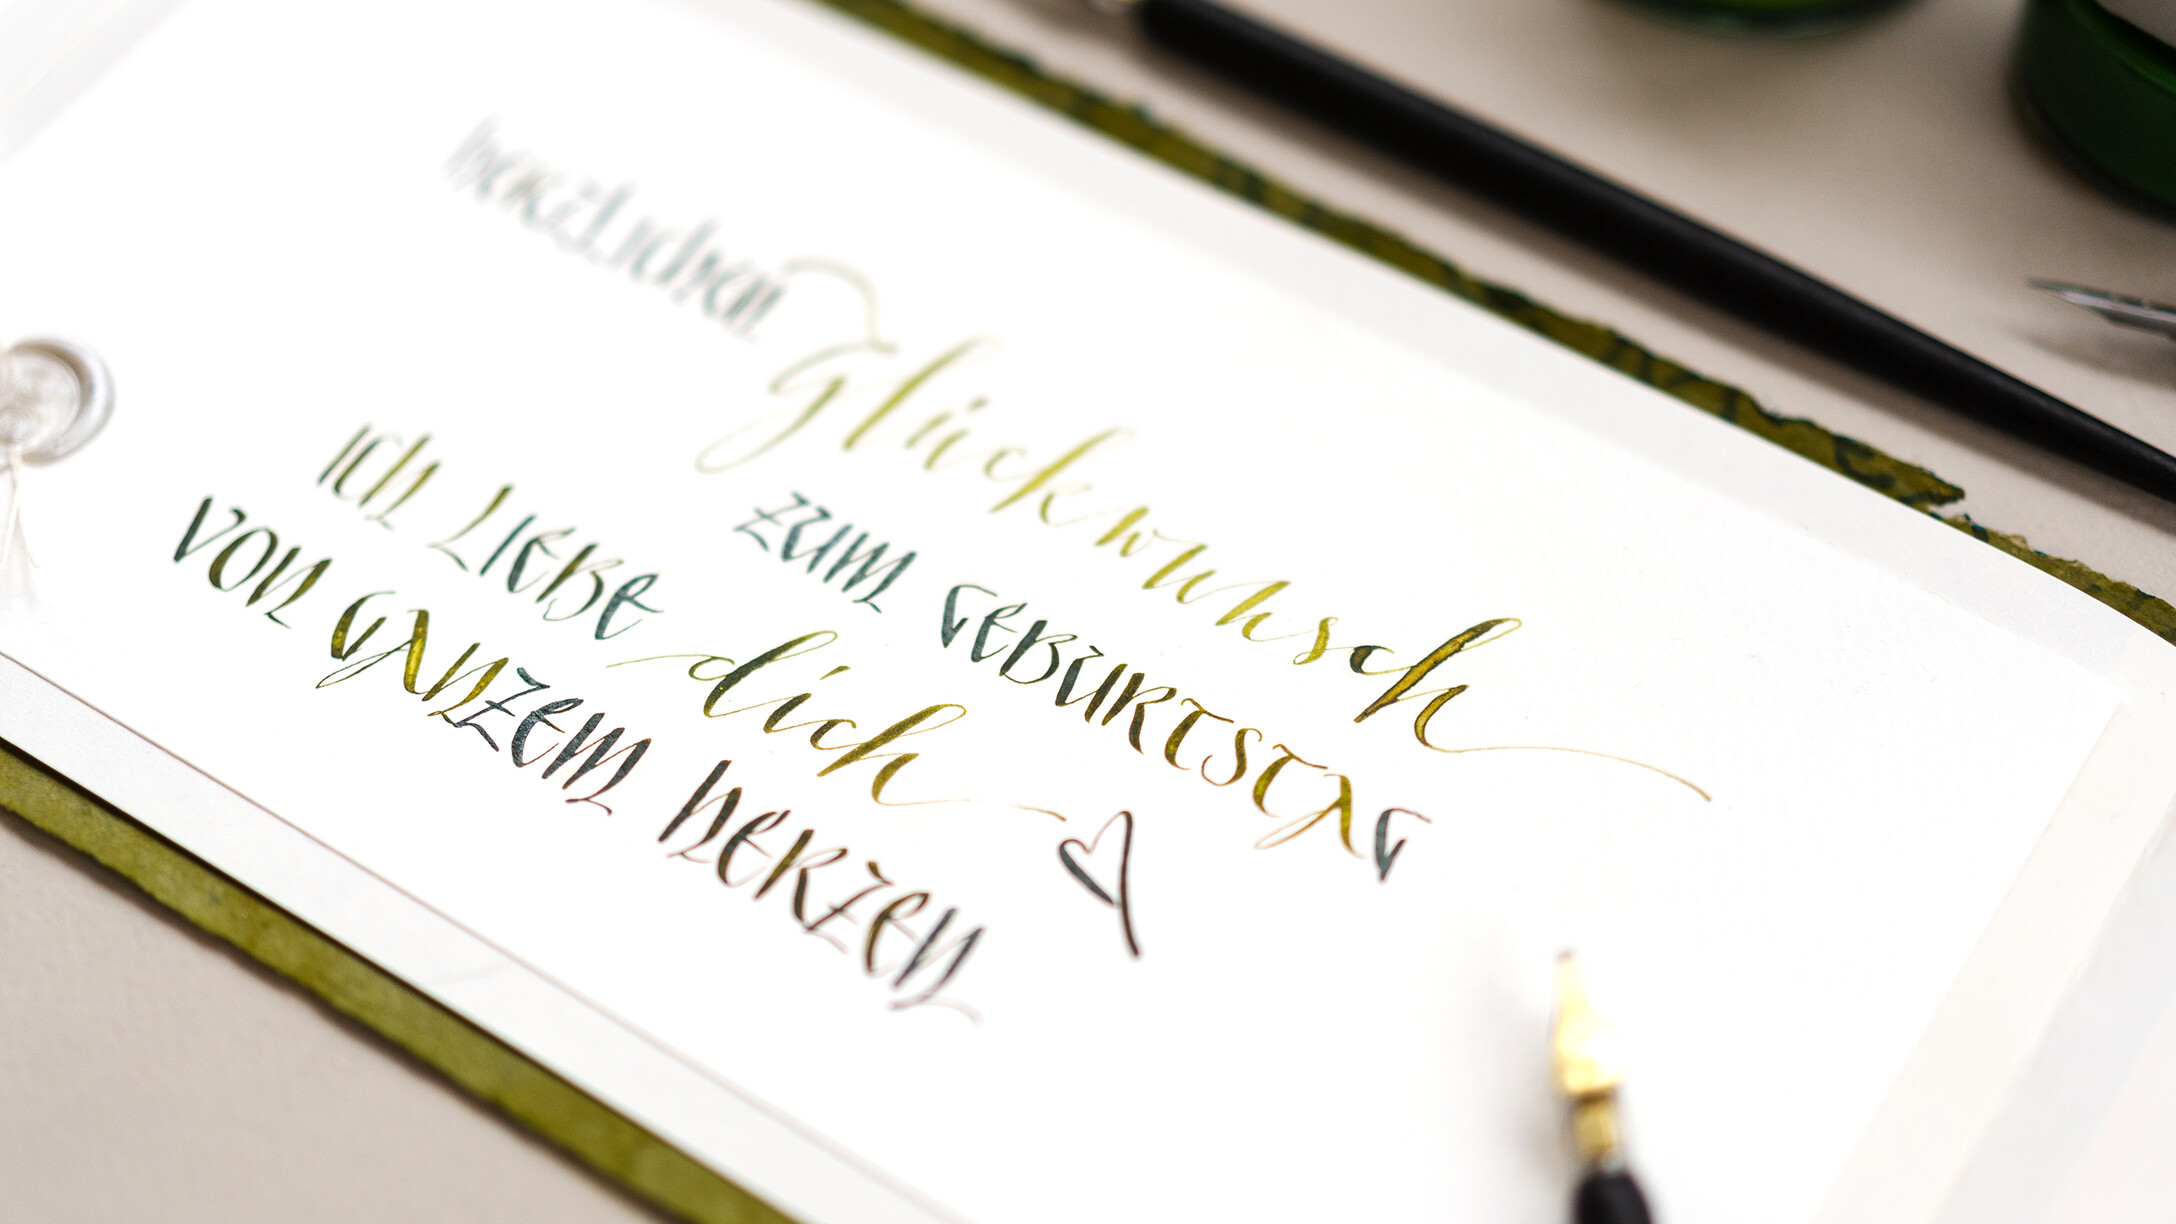 herzlichen
Glückwunsch
ZUM GEBURTSTAG
ICH LIEBE dich
VON GANZEM HERZEN